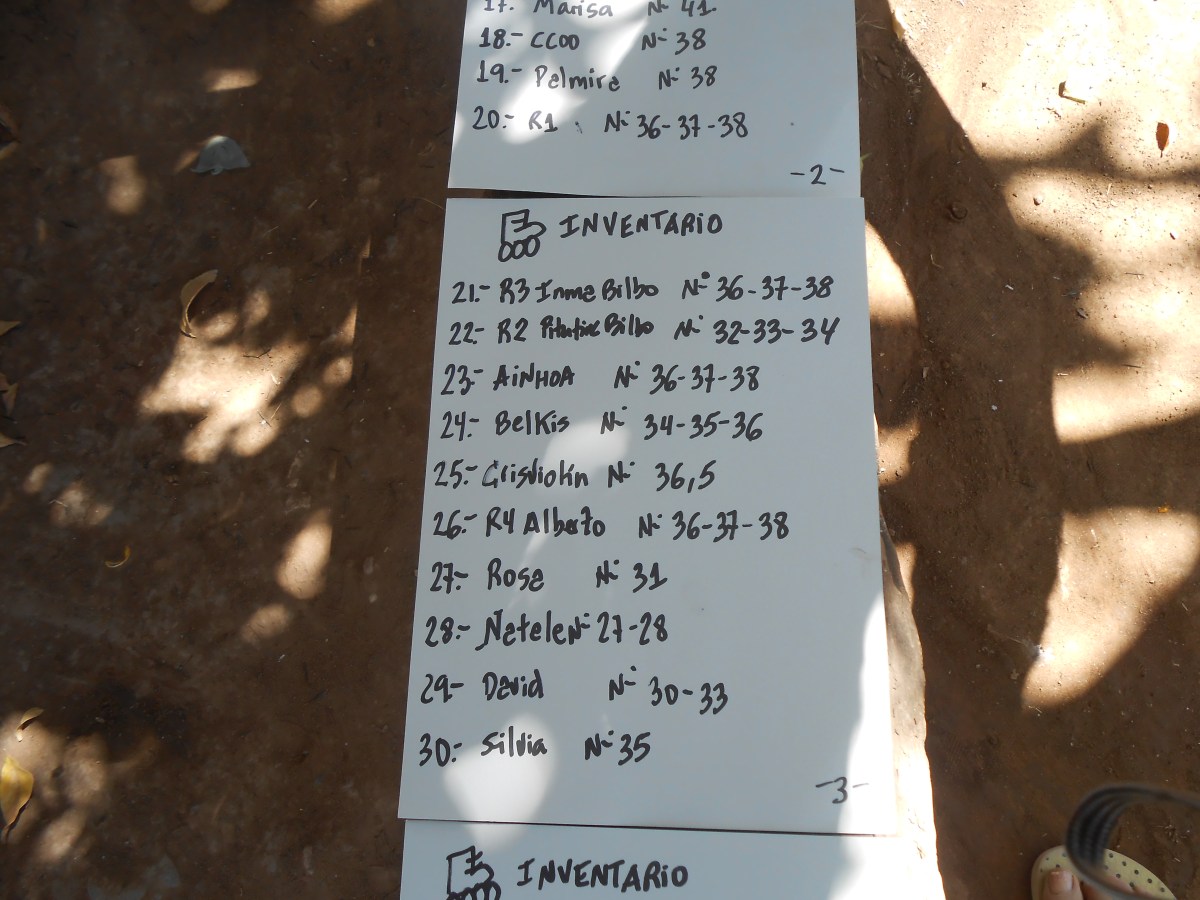 17. Marisa Nº 41
18.- CCOO Nº 38
19.- Palmira Nº 38
20.- R1 Nº 36-37-38
-2-
INVENTARIO
21.- R3 Inma Bilbo Nº 36-37-38
22.- R2 Bilbo Nº 32-33-34
23.- AiNHOA Nº 36-37-38
24.- Belkis Nº 34-35-36
25.- Nº 36,5
26.- R4 Alberto Nº 36-37-38
27.- Rosa Nº 31
28.- Natale Nº 27-28
29.- David Nº 30-33
30.- Silvia Nº 35
-3-
INVENTARIO